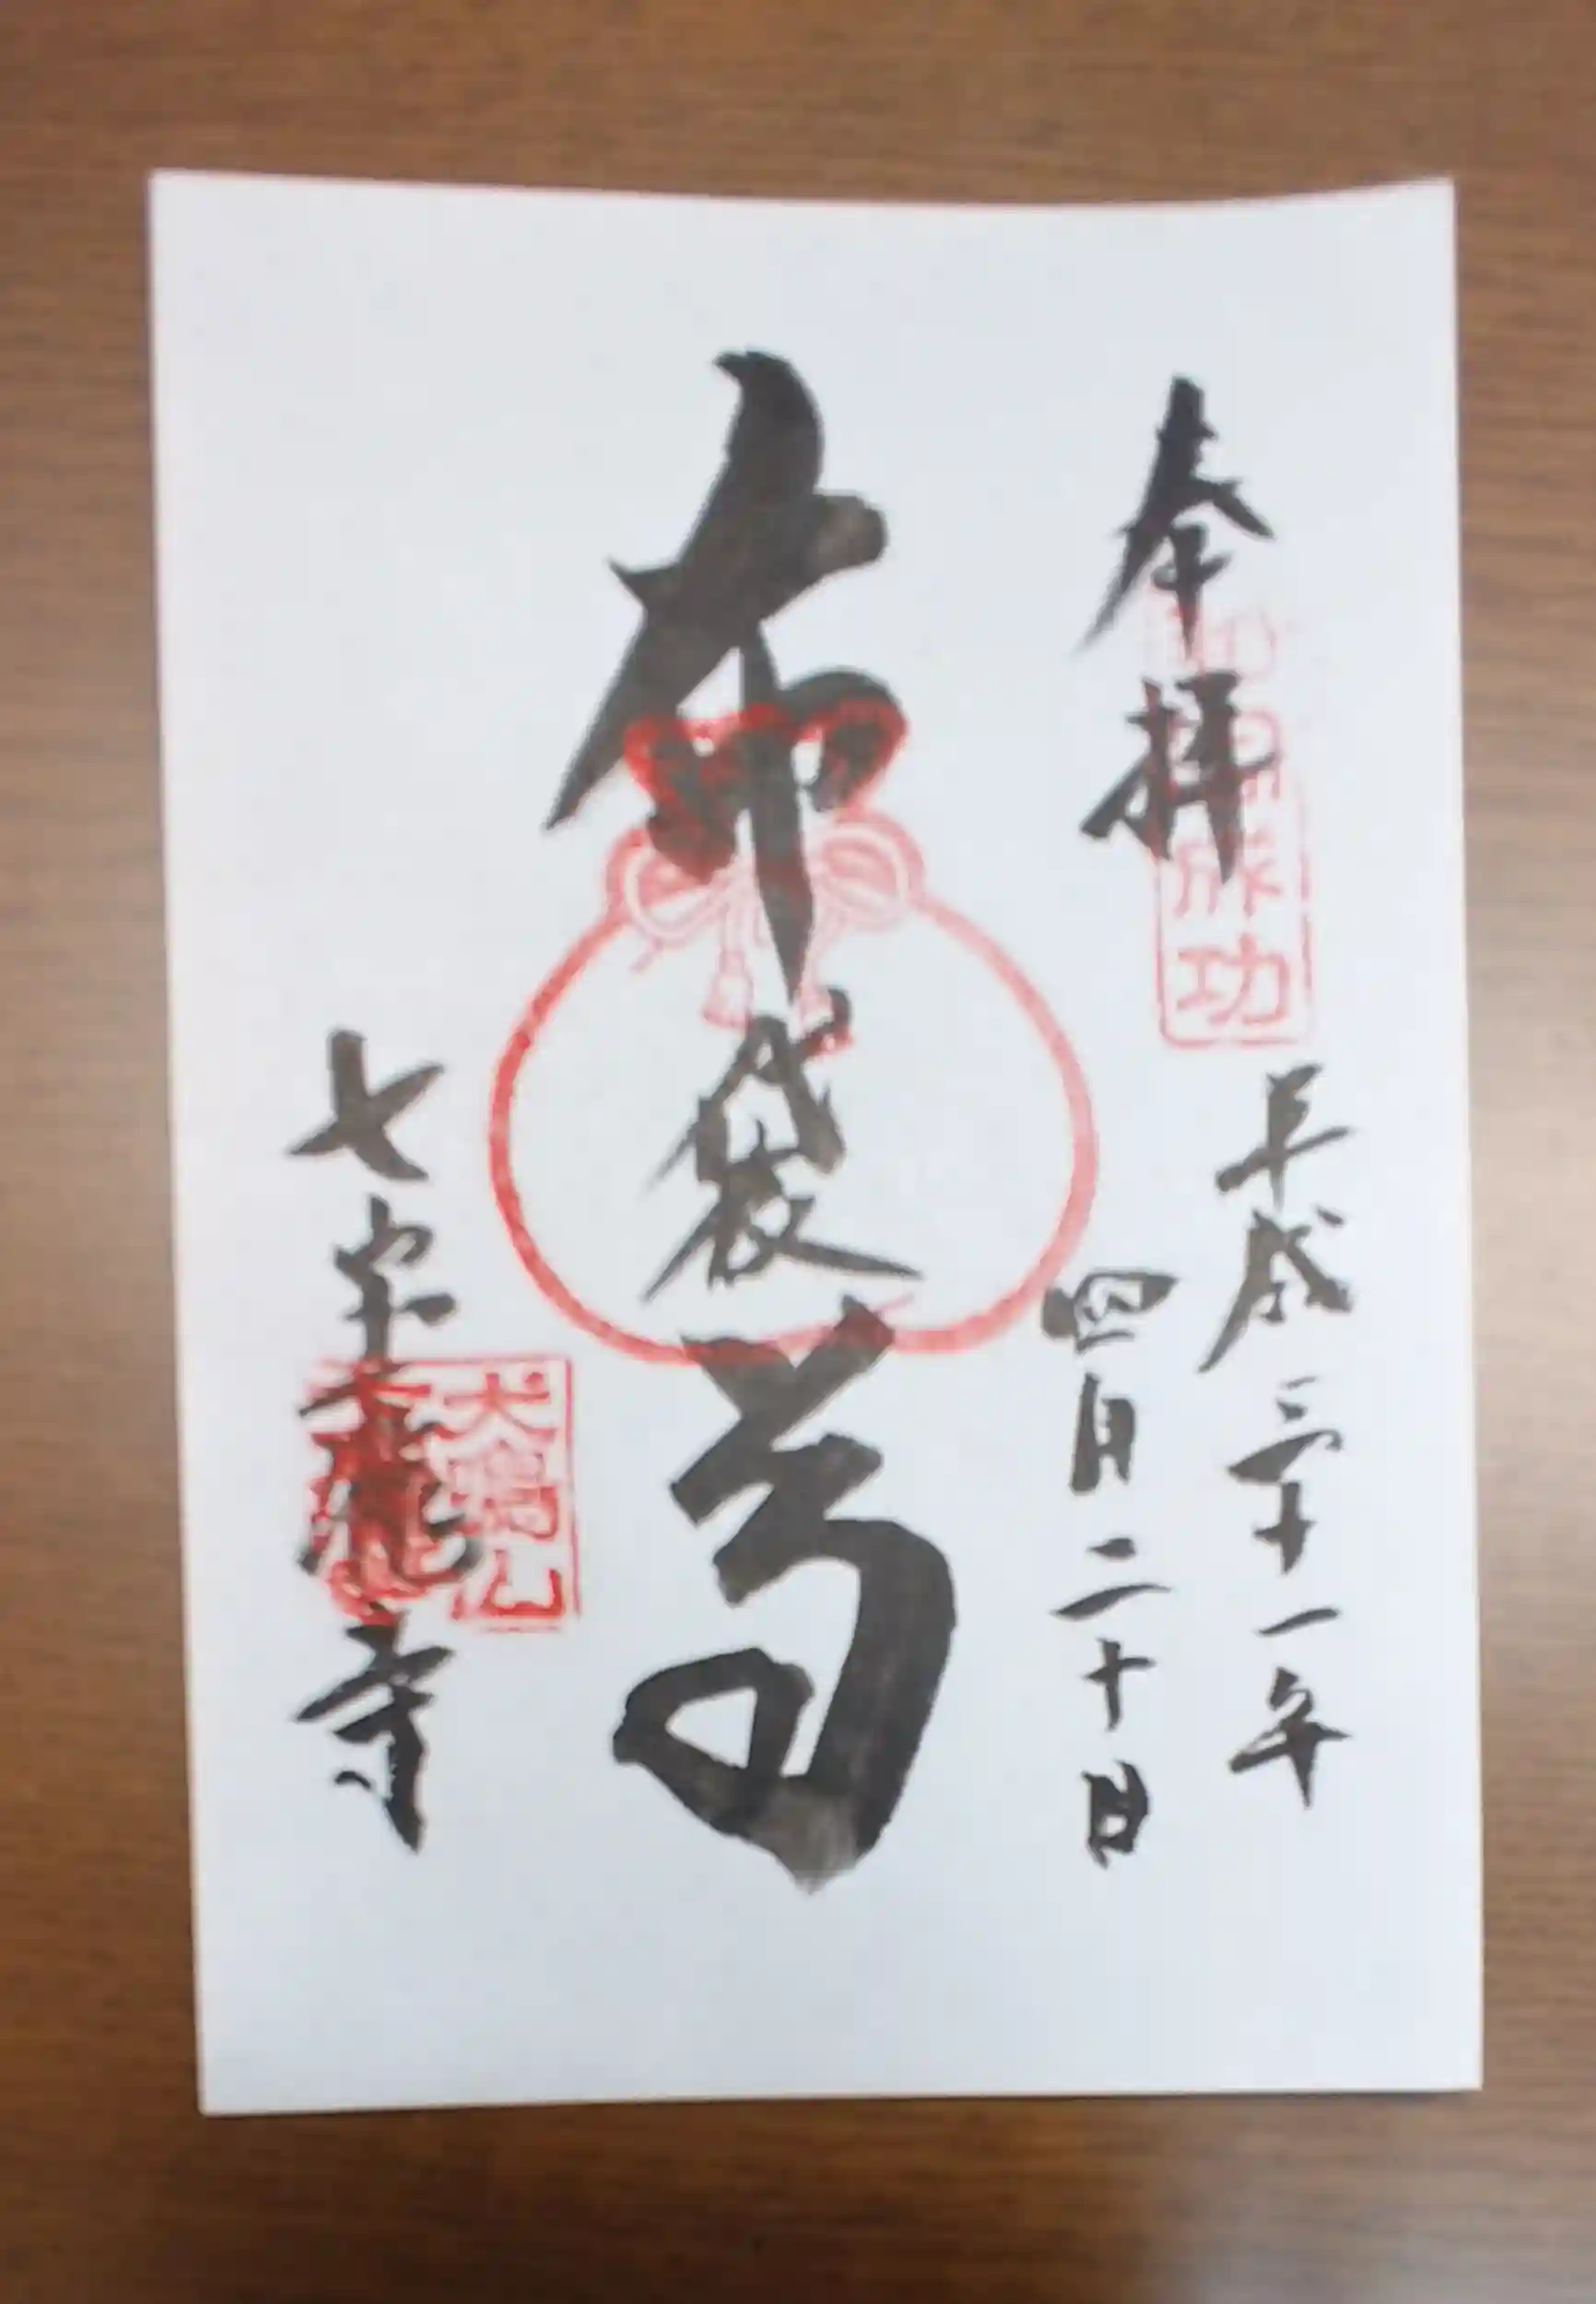 奉拝
平成三十一年
四月二十日
布袋尊
犬鳴山
七宝瀧寺